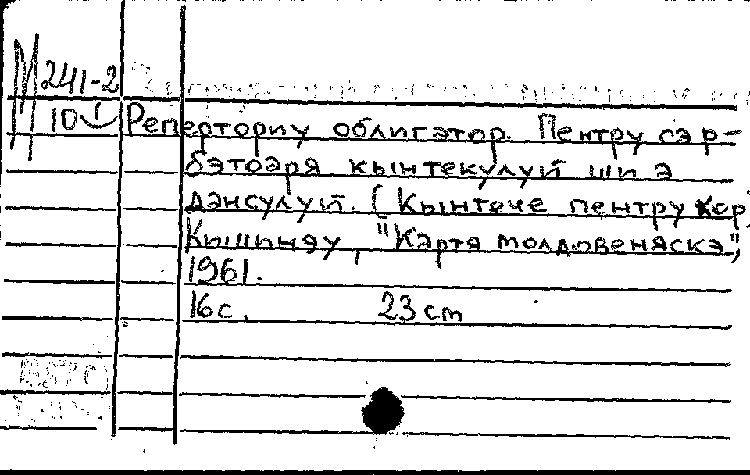 М 241-2
10 I
Реперториу облигатор. Пентру сэр-
бэтоаря кынтекулуй ши а
дансулуй. (Кынтече пентру кор)
Кишинэу, "Картя молдовеняскэ",
1961.
16 с. 23 cm